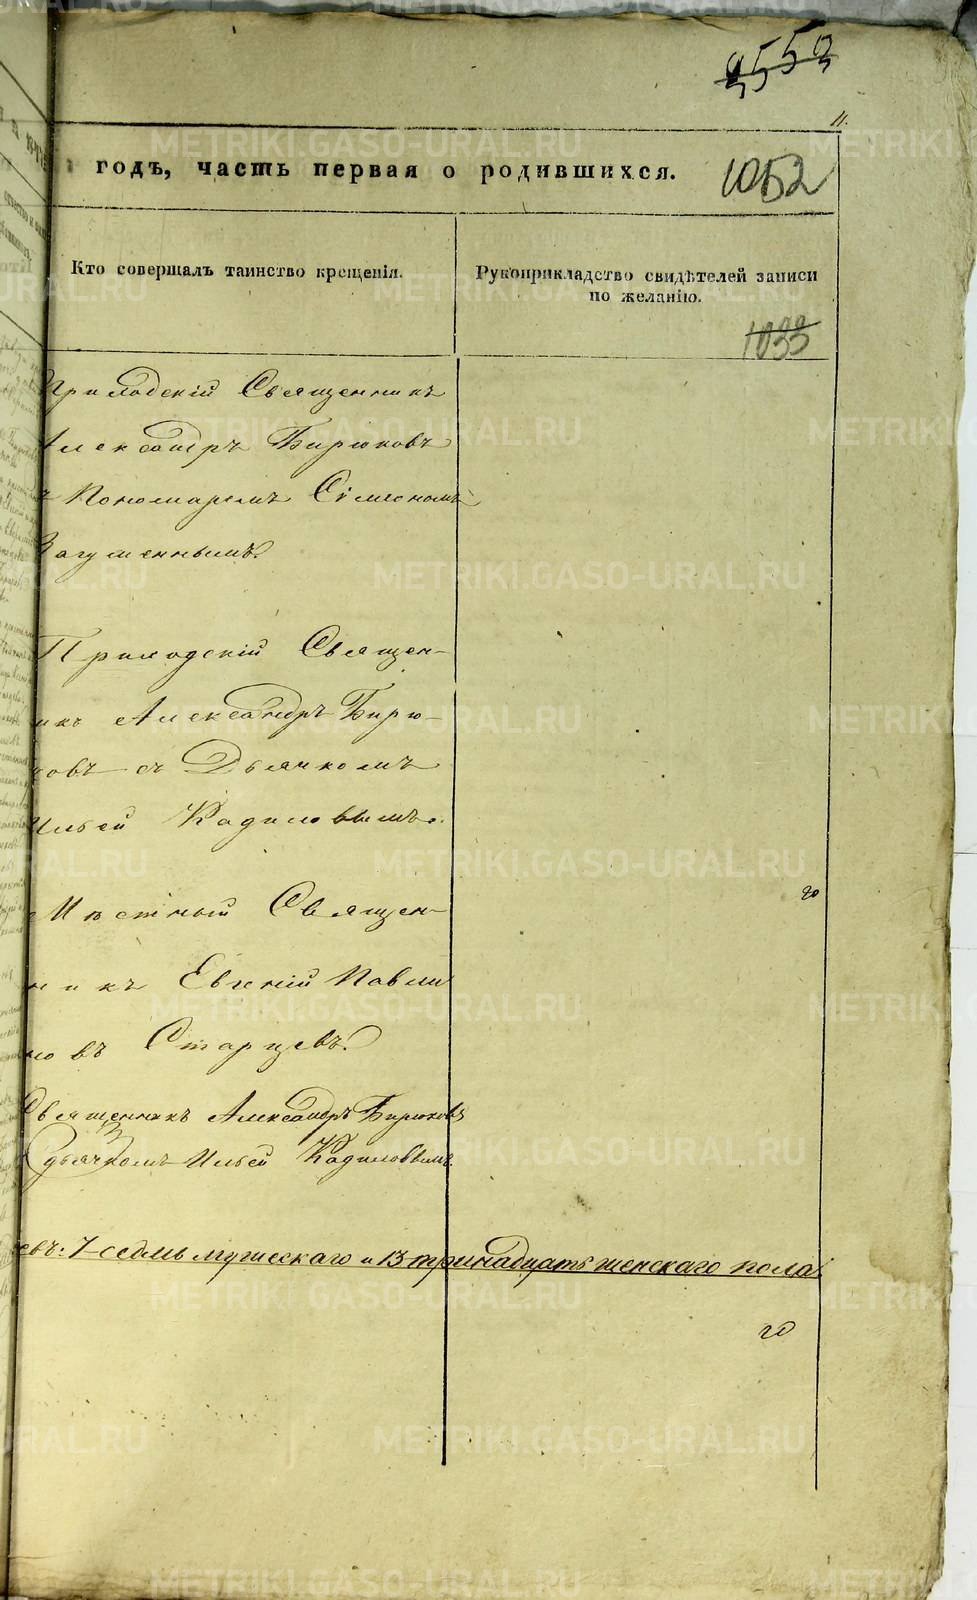 11.
годъ, часть первая о родившихся.
1052
Кто совершалъ таинство крещенія.
Рукоприкладство свидѣтелей записи
по желанію.
1033
Приходскій Священникъ
Александръ Бирюковъ
съ Пономаремъ Сімеономъ
Загуменнымъ.
Приходскій Священ-
никъ Александръ Бирю-
ковъ съ Дьячкомъ
Ильей Кадиловымъ.
Мѣстный Священ-
никъ Евгеній Павли
новъ Старцевъ.
Священникъ Александръ Бирюковъ
съ дьячкомъ Ильей Кадиловымъ.
евъ: 7 седмь мужескаго и 13 тринадцать женскаго пола.
METRIKI.GASO-URAL.RU